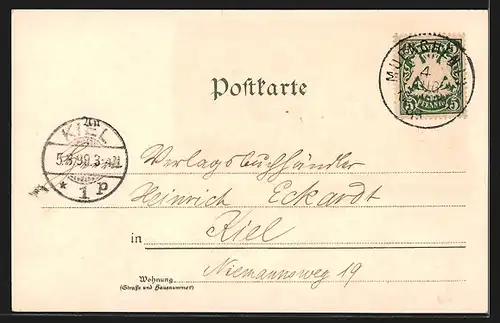 MÜNCHEN
4
5 PFENNIG 5
Postkarte
An
KIEL
5.8.99.3-4N
* 1 p
Verlagsbuchhändler
Heinrich Eckardt
in Kiel
Niemannsweg 19
Wohnung
(Straße und Hausnummer)